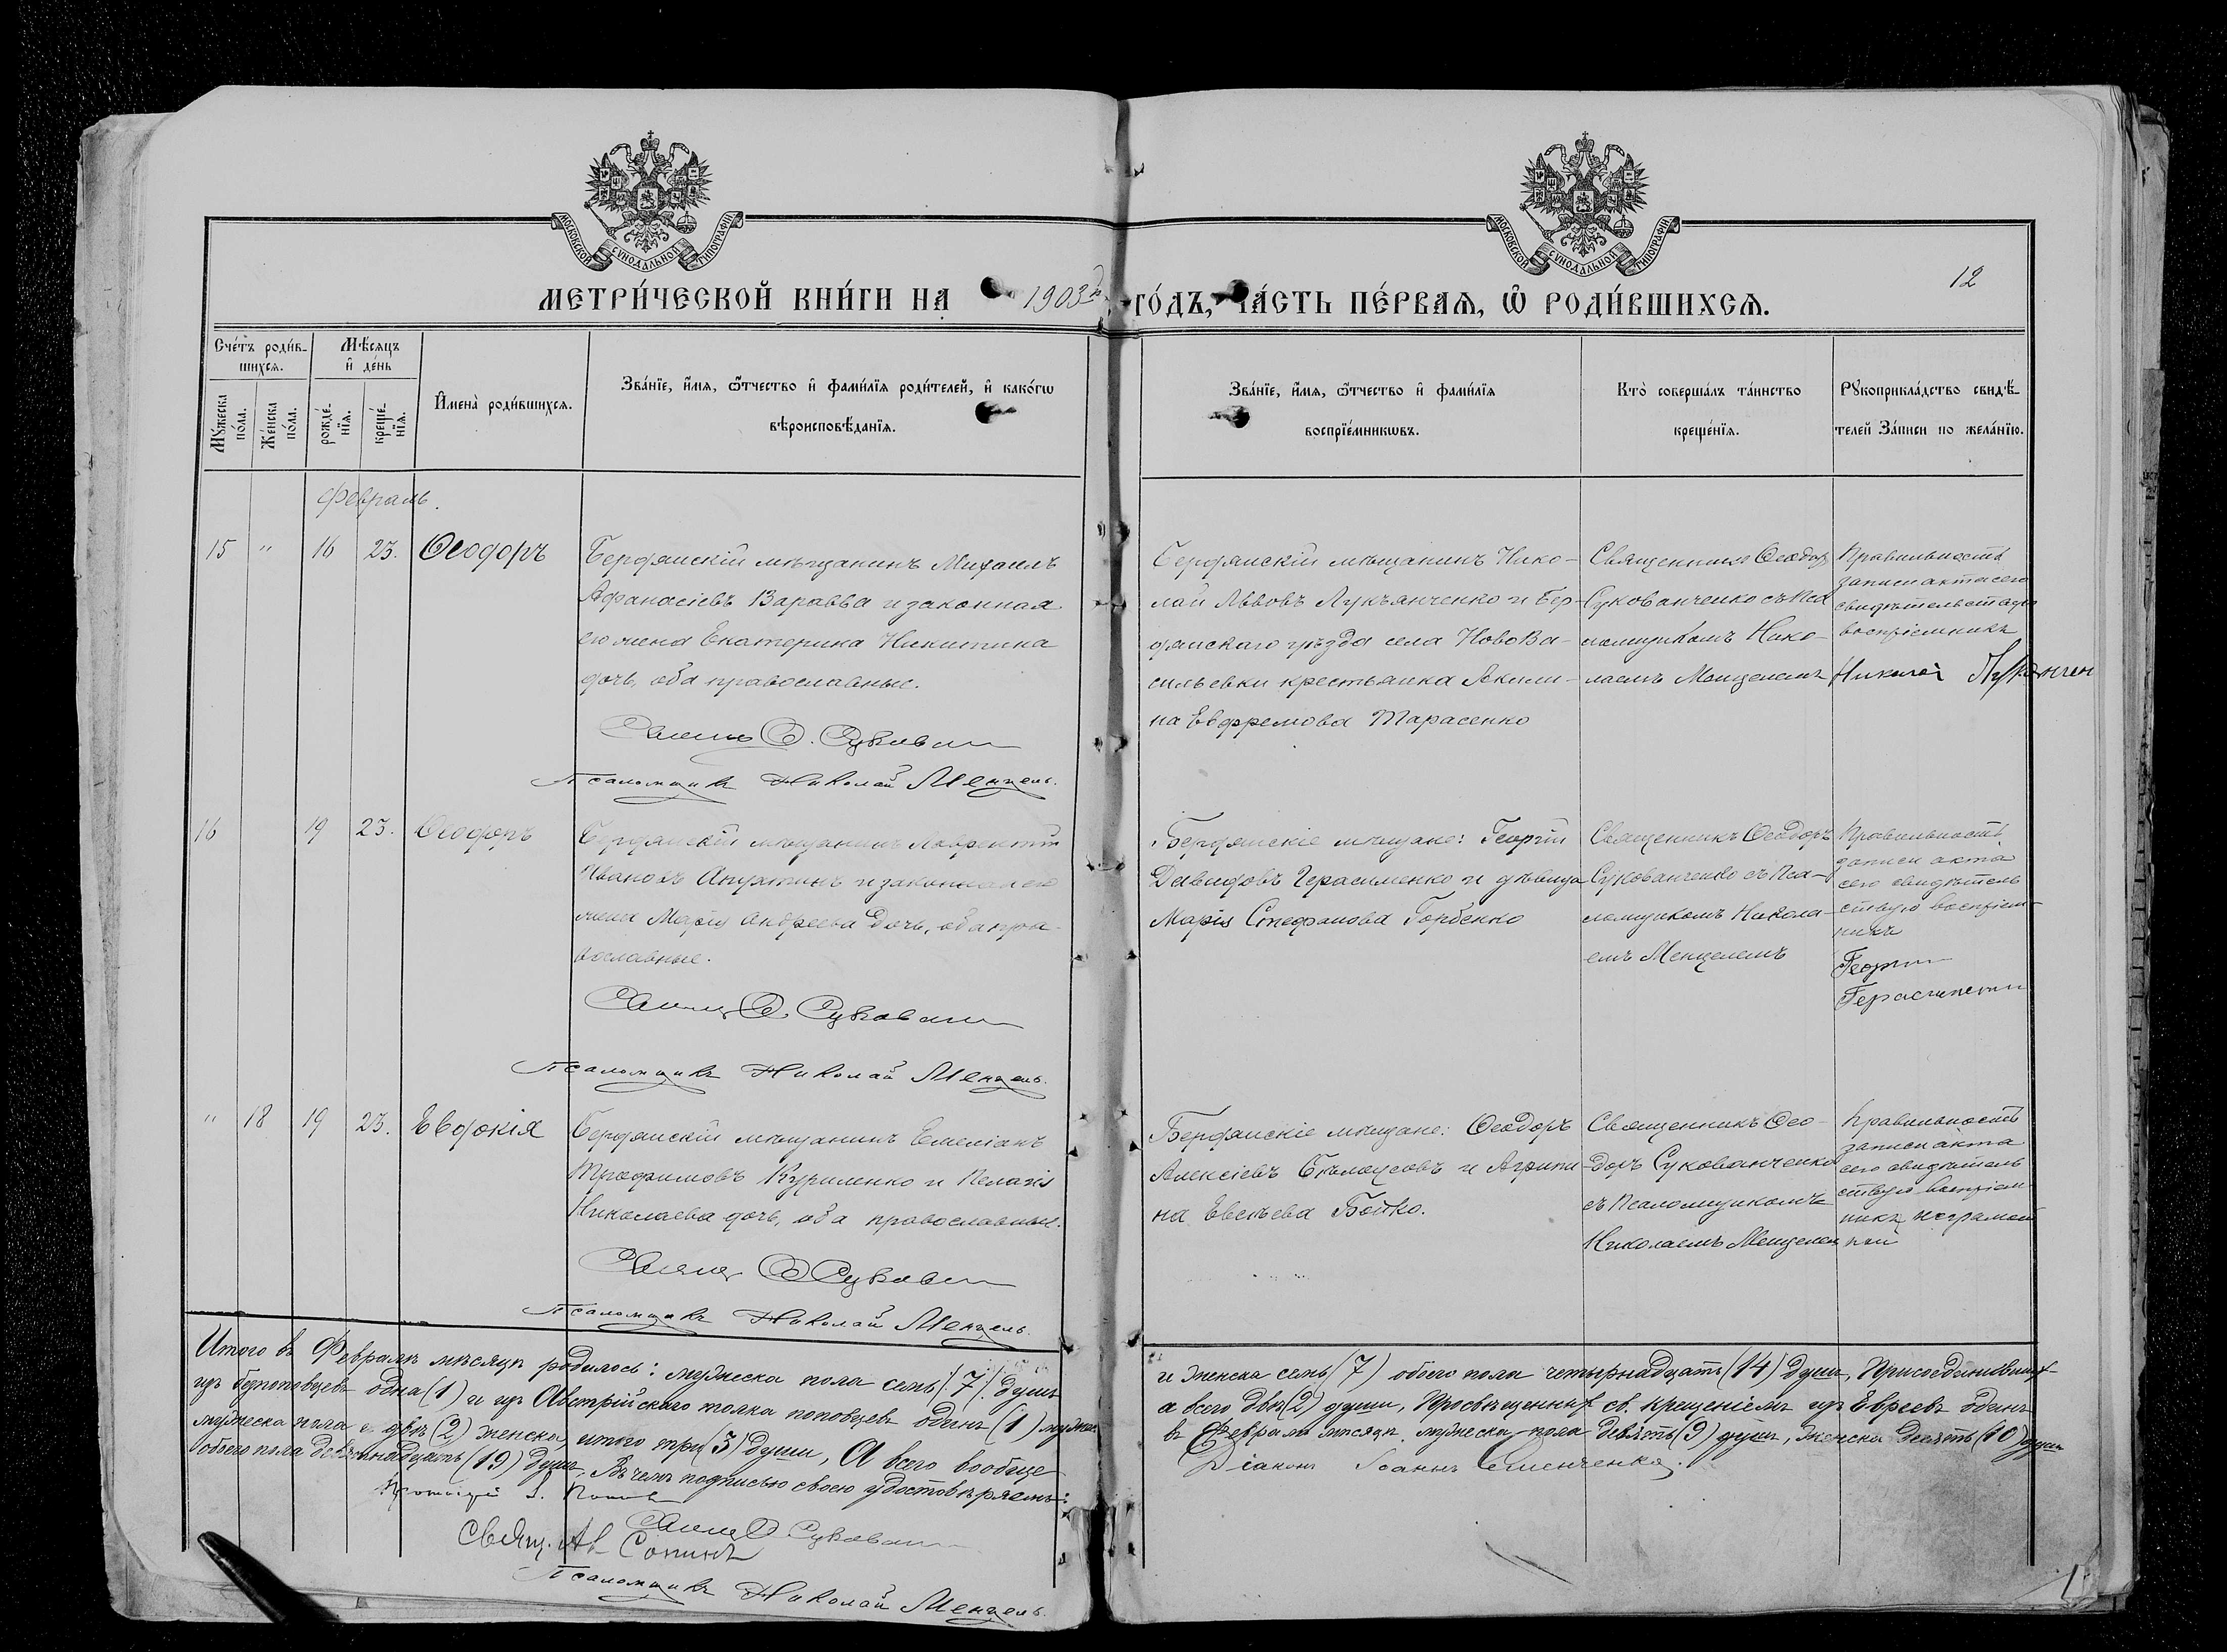 МОСКОВСКОЙ СѴНОДАЛЬНОЙ ТИПОГРАФІИ
МОСКОВСКОЙ СѴНОДАЛЬНОЙ ТИПОГРАФІИ
12
МЕТРИ́ЧЕСКОЙ КНИ́ГИ НА 1903й ГО́ДЪ, ЧА́СТЬ ПЕ́РВАѦ, Ѡ҆ РОДИ́ВШИХСѦ.
Сче́тъ роди́в-
шихсѧ.
Мѣ́сѧцъ
и҆ де́нь
Мꙋ́жеска
по́ла.
Же́нска
по́ла.
рожде́-
нїѧ.
креще́-
нїѧ.
И҆мена̀ роди́вшихсѧ.
Зва́нїе, и҆́мѧ, ѻ҆́тчество и҆ фами́лїѧ роди́телей, и҆ како́гѡ
вѣроисповѣ́данїѧ.
Зва́нїе, и҆́мѧ, ѻ҆́тчество и҆ фами́лїѧ
воспрїе́мникѡвъ.
Кто̀ соверша́лъ та́инство
креще́нїѧ.
Рꙋкоприкла́дство свидѣ́-
телей за́писи по жела́нїю.
Февраль.
15 " 16 23. Ѳеодоръ
Бердянскій мѣщанинъ Михаилъ
Афанасіевъ Варавва и законная
его жена Екатерина Никитина
дочь, оба православные.
Священ. Ѳ. Сукован
Псаломщикъ Николай Менцель.
Бердянскій мѣщанинъ Нико-
лай Львовъ Лукъянченко и Бер-
дянскаго уѣзда села НовоВа-
сильевки крестьянка Акили-
на Евфремова Тарасенко
Священникъ Ѳеодоръ
Сукованченко съ Пса
ломщикомъ Нико-
лаемъ Менцелемъ
Правильность
записи акта сего
свидѣтельствую
воспріемникъ
Николай Лукянчен
16 19 23. Ѳеодоръ
Бердянскій мѣщанинъ Лаврентій
Ивановъ Апухтинъ и законная его
жена Марія Андреева дочь, оба пра-
вославные.
Священ. Ѳ. Сукован
Псаломщикъ Николай Менцель.
Бердянскіе мѣщане: Георгій
Давидовъ Герасименко и дѣвица
Марія Стефанова Горбенко
Священникъ Ѳеодоръ
Сукованченко съ Пса-
ломщикомъ Никола-
емъ Менцелемъ
Правильность
записи акта
сего свидѣтель
ствую воспріем-
никъ
Георгій
Герасименко
" 18 19 23. Евдокія
Бердянскій мѣщанинъ Емеліанъ
Трофимовъ Куриленко и Пелагія
Николаева дочь, оба православные.
Священ. Ѳ. Сукован
Псаломщикъ Николай Менцель.
Бердянскіе мѣщане: Ѳеодоръ
Алексіевъ Бѣлоусовъ и Агрипи-
на Евсѣева Бойко.
Священникъ Ѳео-
доръ Сукованченко
съ Псаломщикомъ
Николаемъ Менцелемъ
Правильность
записи акта
сего свидѣтель
ствую воспріем-
никъ неграмот
ный
Итого въ Февралѣ мѣсяцѣ родилось: мужеска пола семь (7) душъ
и женска семь (7) обоего пола четырнадцать (14) душъ, Присоединивших-
изъ безпоповцевъ одна (1) и изъ Австрійскаго толка поповцевъ одинъ (1) мужес.
а всего двѣ (2) души, Просвѣщенных св. крещеніемъ изъ Евреевъ одинъ
мужеска пола и двѣ (2) женска, итого три (3) души, А всего вообще
въ Февралѣ мѣсяцѣ мужеска пола девять (9) душъ, женска десять (10) душъ
обоего пола девятнадцать (19) душъ, Въ чемъ подписью своею удостовѣряемъ:
Діаконъ Іоаннъ Семенченко.
Свящ. Ѳ. Сукован
Свящ. Ав. Сопинъ
Псаломщикъ Николай Менцель.